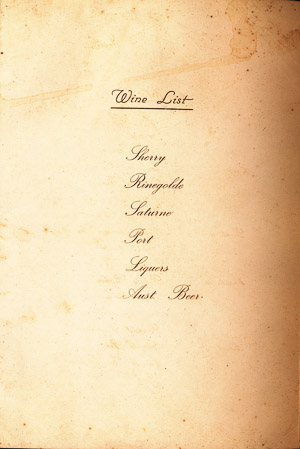 Wine List
Sherry
Rinegolde
Saturne
Port
Liquers
Aust. Beer.